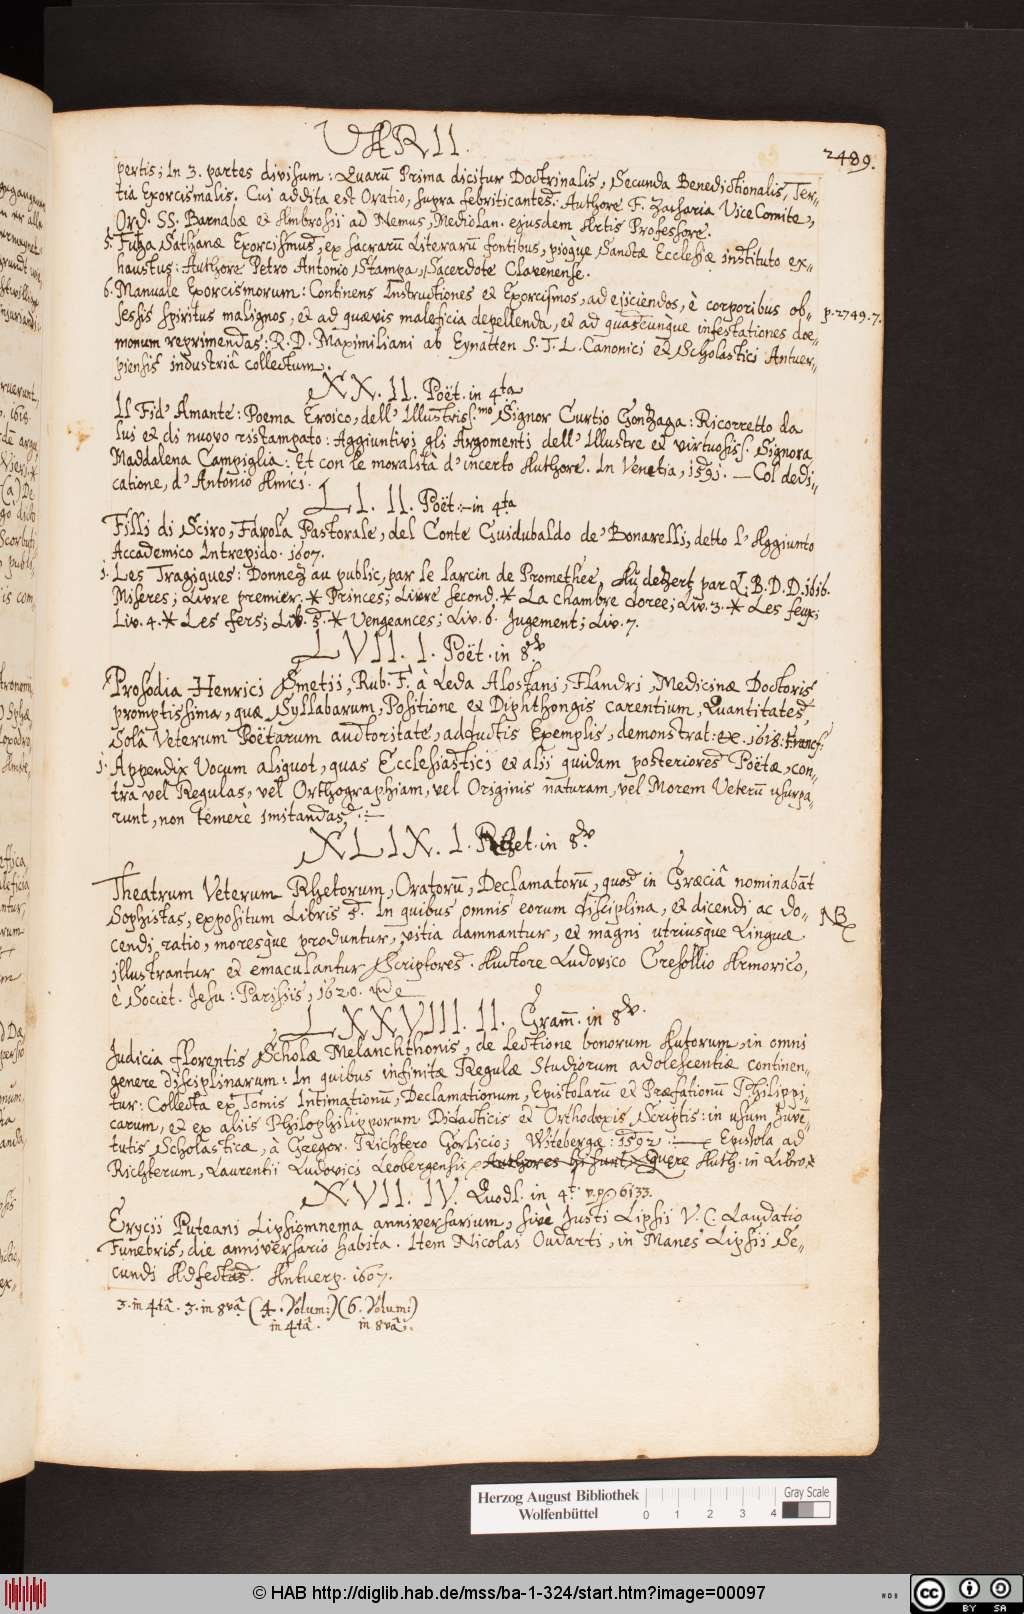 VARII.
2489.
pertis; In 3. partes divisum: Quarū Prima dicitur Doctrinalis, Secunda Benedictionalis, Ter-
tia Exorcismalis. Cui addita est Oratio, supra febriticantes. Authore F. Zacharia Vice Comite,
Ord. SS. Barnabæ et Ambrosii ad Nemus, Mediolan. ejusdem Artis Professore.
5. Fuga Sathanæ Exorcismus, ex sacrarū Literarū fontibus, pioqùe Sanctæ Ecclesiæ instituto ex-
haustus: Authore Petro Antonio Stampa, Sacerdote Clavenense.
6. Manuale Exorcismorum: Continens Instructiones et Exorcismos, ad eijciendos, è corporibus ob-
p. 2749. 7.
sessis spiritus malignos, et ad quævis maleficia depellenda, et ad quascunqùe infestationes dæ-
monum reprimendas: R. D. Maximiliani ab Eynatten S. T. L. Canonici et Scholastici Antuer-
piensis industriâ collectum.
XX. II. Poët. in 4ta
Il Fid' Amante: Poema Eroico, dell' Illustriss.mo Signor Curtio Gonzaga: Ricorretto da
lui et di nuovo ristampato: Aggiuntivi gli Argomenti dell' Illustre et virtuosiss. Signora
Maddalena Campiglia: Et con le moralità d' incerto Authore. In Venetia, 1591. — Col dedi-
catione, d' Antonio Amici.
LI. II. Poët: in 4ta
Filli di Sciro, Favola Pastorale, del Conte Guidubaldo de' Bonarelli, detto l' Aggiunto
Accademico Intrepido. 1607.
1. Les Tragiques: Donnez au public, par le larcin de Promethee, Au dezert par L. B. D. D. 1616.
Miseres; Livre premier. * Princes; Livre second. * La chambre doree; Liv. 3. * Les feux;
Liv. 4. * Les fers; Liv. 5. * Vengeances; Liv. 6. Jugement; Liv. 7.
LVII. I. Poët. in 8v
Prosodia Henrici Smetii, Rub. F. à Leda Alostani, Flandri, Medicinæ Doctoris
promptissima, quæ Syllabarum, Positione et Diphthongis carentium, Quantitates,
Solâ Veterum Poëtarum auctoritate, adductis Exemplis, demonstrat: 1618: Francf.
1. Appendix Vocum aliquot, quas Ecclesiastici et alii quidam posteriores Poëtæ, con-
tra vel Regulas, vel Orthographiam, vel Originis naturam, vel Morem Veterū usurpa-
runt, non temerè imitandas. —
XLIX. I. Rhet. in 8v
Theatrum Veterum Rhetorum, Oratorū, Declamatorū, quos in Græciâ nominabāt
Sophistas, expositum Libris 5. In quibus omnis eorum disciplina, et dicendi ac do-
NB
cendi ratio, moresqùe produntur, vitia damnantur, et magni utriusque Linguæ
illustrantur et emaculantur Scriptores. Auctore Ludovico Cresollio Armorico,
è Societ. Jesu: Parisiis, 1620.
LXXVIII. II. Gram̄. in 8v.
Judicia florentis Scholæ Melanchthonis, de lectione bonorum Autorum, in omni
genere disciplinarum: In quibus infinitæ Regulæ Studiorum adolescentiæ continen-
tur: Collecta ex Tomis Intimationū, Declamationum, Epistolarū et Præfationū Philippi-
carum, et ex aliis Philophilipporum Didacticis et Orthodoxis Scriptis: in usum Juven̄-
tutis Scholasticæ, à Gregor. Richtero Gorlicio; Witebergæ: 1592. — Epistola ad
Richterum, Laurentii Ludovici Leobergensis Authores hi sunt: Quere Auth. in Libro.
XVII. IV. Quodl. in 4t v. p. 6133.
Erycii Puteani Lipsiomnema anniversarium, sivè Justi Lipsii V. C. Laudatio
Funebris, die anniversario habita. Item Nicolai Oudarti, in Manes Lipsii Se-
cundi Adfectus. Antverp. 1607.
3. in 4tâ. 3. in 8vâ (4. Volum:) (6. Volum:)
in 4tâ. in 8vâ.
Herzog August Bibliothek
Wolfenbüttel
0 1 2 3 4
Gray Scale
© HAB http://diglib.hab.de/mss/ba-1-324/start.htm?image=00097
cc BY SA